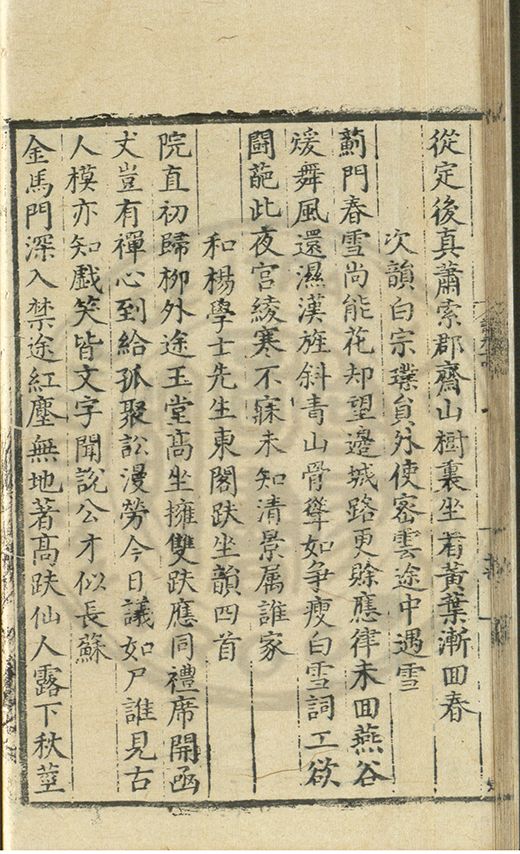 從定後真蕭索郡齋山樹裏坐看黃葉漸回春
次韻白宗璞貟外使宻雲途中遇雪
薊門春雪尚能花却望邊城路更賖應律未回燕谷
煖舞風還濕漢旌斜青山骨聳如争瘦白雪詞工欲
鬪葩此夜宫綾寒不寐未知清景属誰家
和楊學士先生東閣趺坐韻四首
院直初歸栁外途玉堂高坐擁雙趺應同禮席開函
丈豈有禪心到給孤聚訟漫勞今日議如尸誰見古
人模亦知戱笑皆文字聞說公才似長蘇
金馬門深入禁途紅塵無地著髙趺仙人露下秋莖